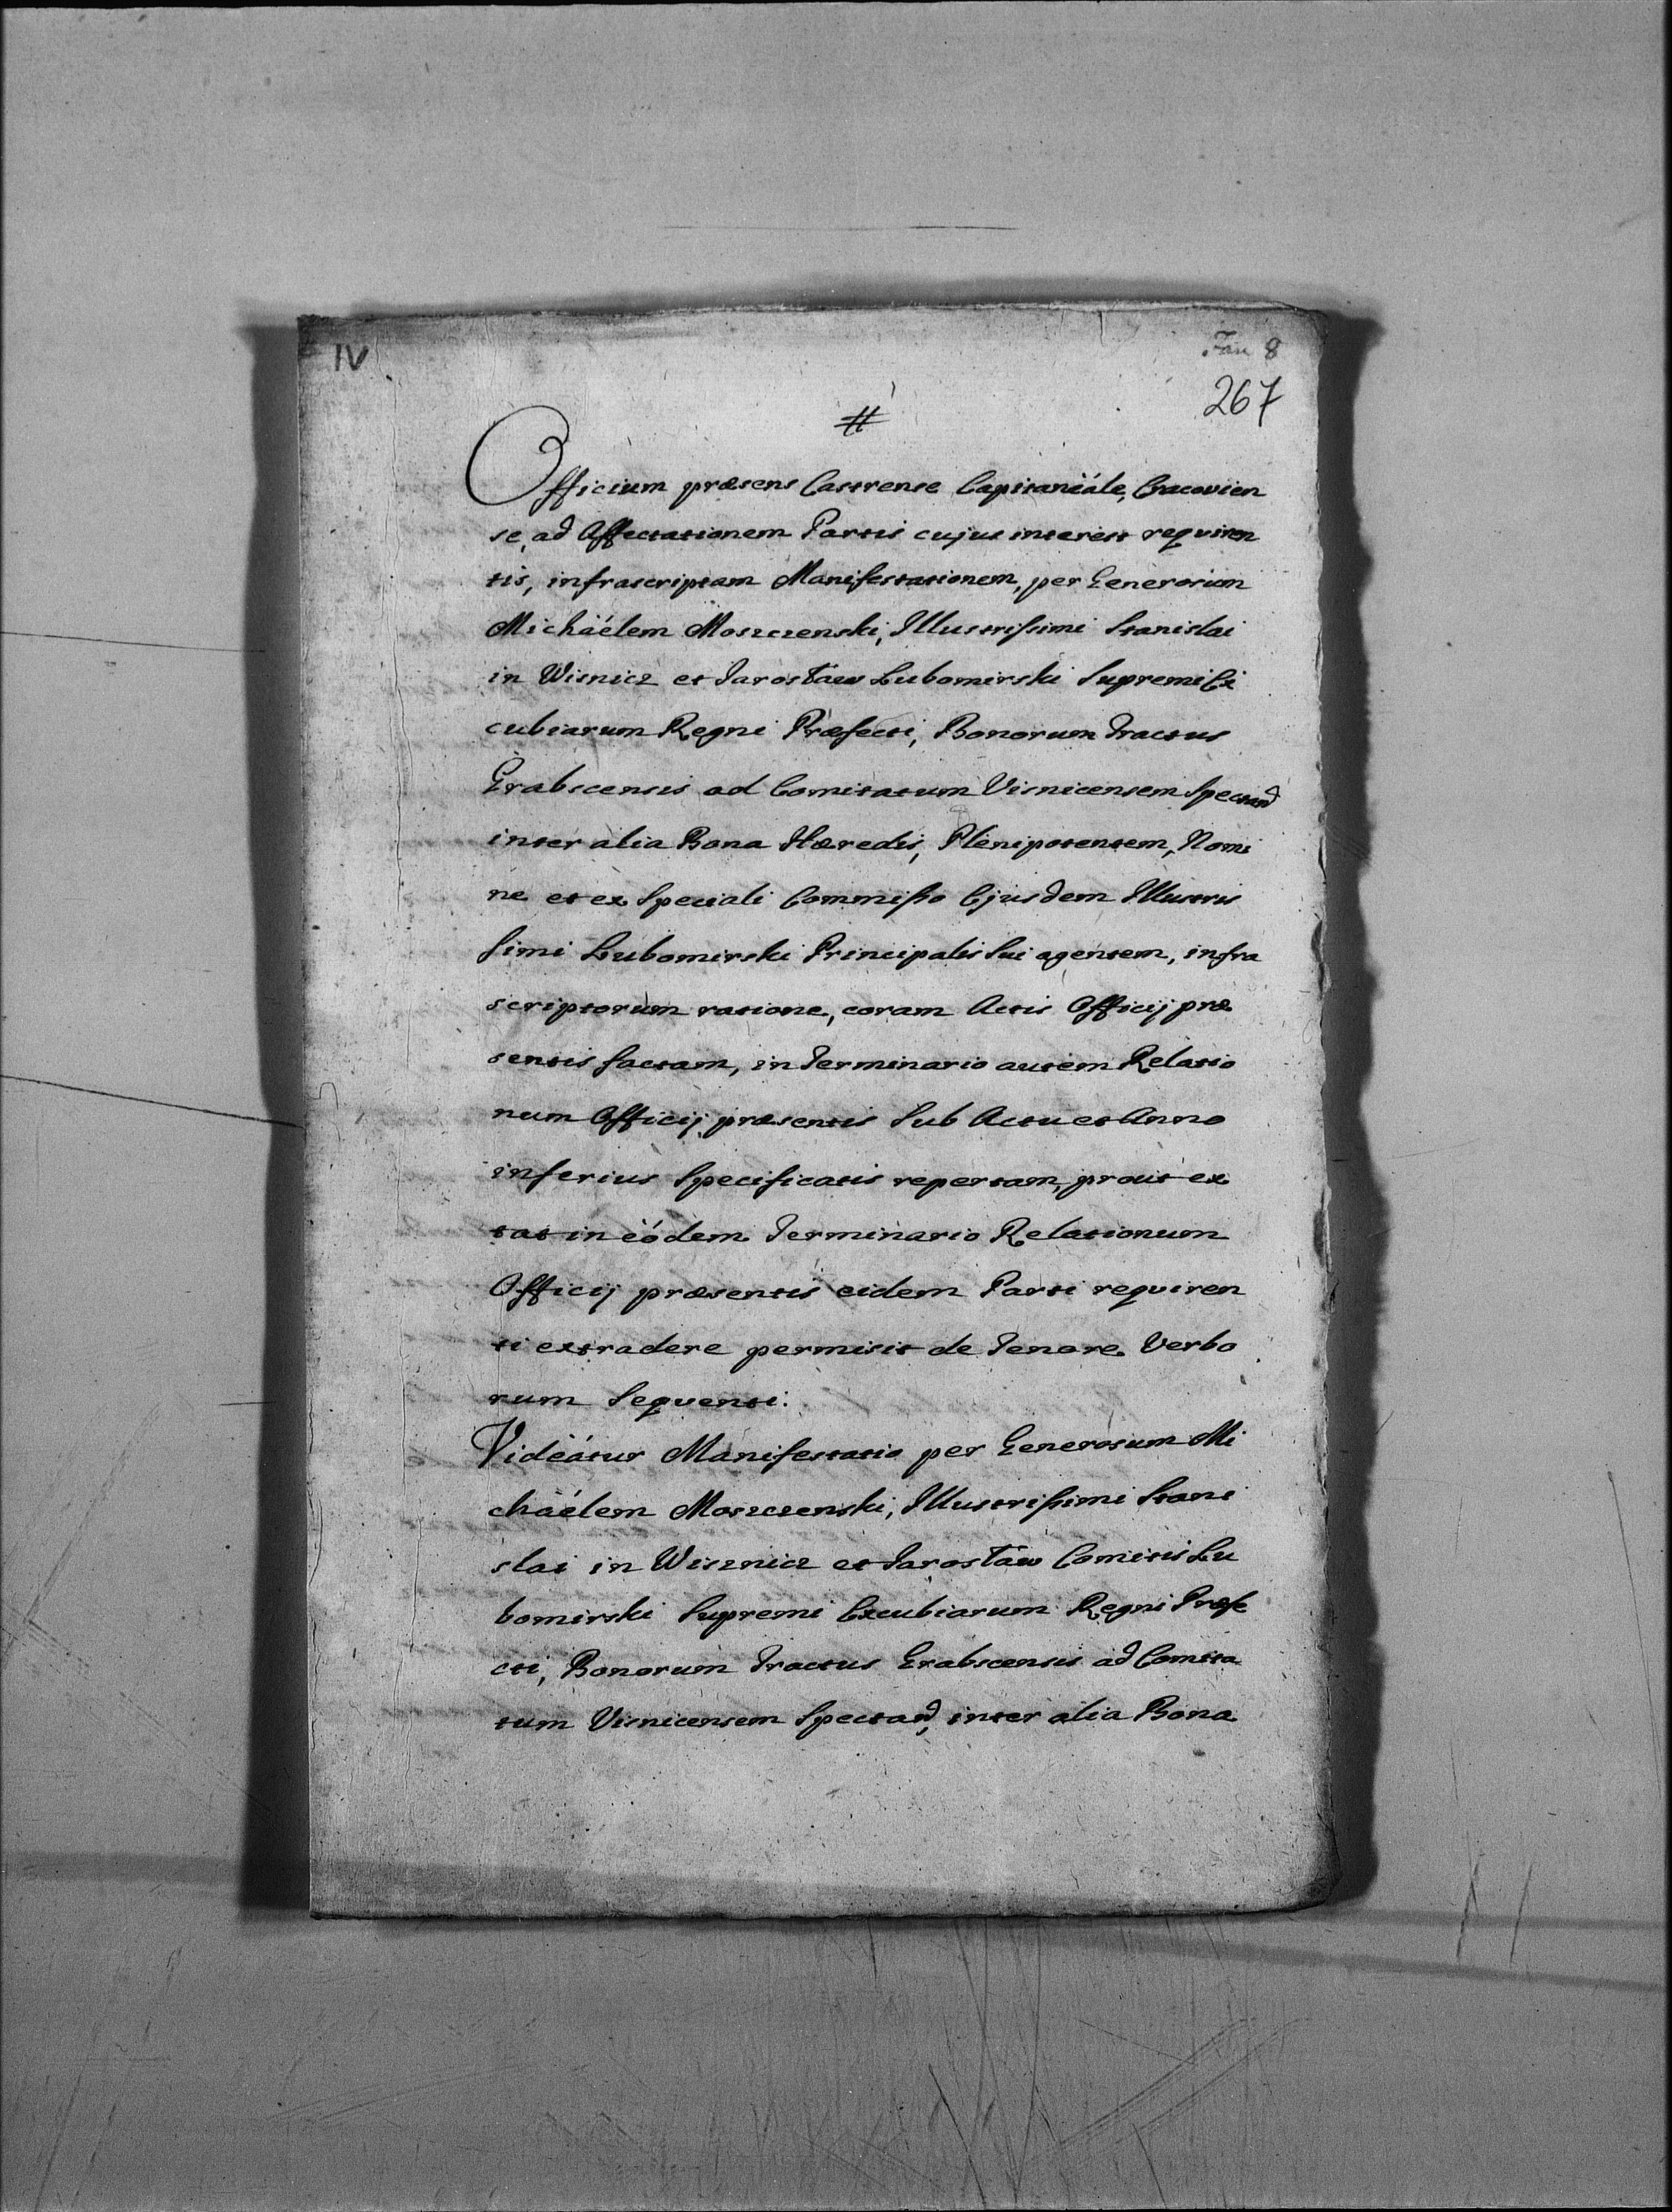 IV
Fan 8
267
#
Officium præsens Castrense Capitaneále, Cracovien
se, ad Affectationem Partis cujus interest requiren
tis, infrascriptam Manifestationem, per Generosum
Michäélem Moszczenski, Illustrissimi Stanislai
in Wisnicz et Jarosław Lubomirski Supremi Ex
cubiarum Regni Præfecti, Bonorum Tractus
Grabscensis ad Comitatum Visnicensem Spectand
inter alia Bona Hæredis, Plenipotentem, Nomi
ne et ex Speciali Commisso Ejusdem Illustris
simi Lubomirski Principalis Sui agentem, infra
scriptorum ratione, coram Actis Officij præ
sentis factam, in Terminario autem Relatio
num Officij præsentis Sub Actu et Anno
inferius Specificatis repertam, prout ex
tat in ëódem Terminario Relationum
Officij præsentis eidem Parti requiren
ti extradere permisit de Tenore Verbo
rum Sequenti:
Videátur Manifestatio per Generosum Mi
chäélem Moszczenski, Illustrissimi Stani
slai in Wisznicz et Jarosław Comitis Lu
bomirski Supremi Excubiarum Regni Præfe
cti, Bonorum Tractus Grabscensis ad Comita
tum Visnicensem Spectand, inter alia Bona